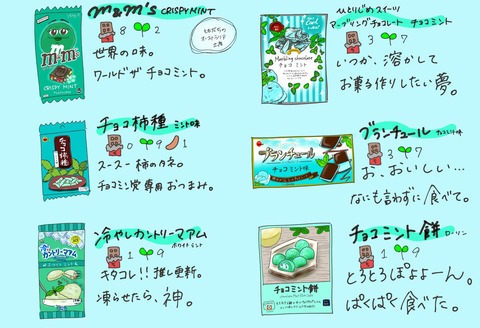 m&m's CRISPY MINT
8 2
世界の味。
ワールドザ チョコミント。
m&m's
CRISPY MINT
チョコ柿種 ミント味
0 9 1
スースー柿のタネ。
チョコミン党専用おつまみ。
チョコ柿種
冷やしカントリーマアム
ホワイトミント
1 9
キタコレ!!推し更新。
凍らせたら、神。
カントリーマアム
ひとりじめスイーツ
マーブリングチョコレート チョコミント
3 7
いつか、溶かして
お菓子作りしたい夢。
Marbling chocolate
チョコミント
ブランチュール チョコミント味
3 7
お、おいしい…
なにも言わずに食べて。
ブランチュール
チョコミント味
チョコミント餅 ローソン
1 9
とろとろぽよよーん。
ぱくぱく食べた。
チョコミント餅